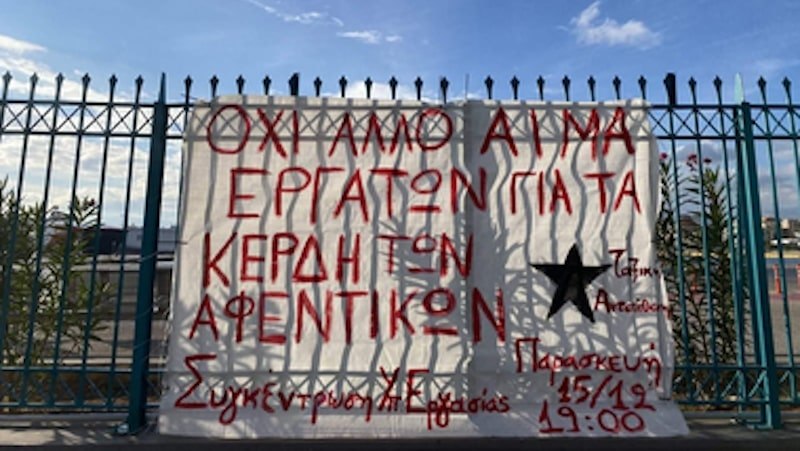 ΟΧΙ ΑΛΛΟ ΑΙΜΑ
ΕΡΓΑΤΩΝ ΓΙΑ ΤΑ
ΚΕΡΔΗ ΤΩΝ
ΑΦΕΝΤΙΚΩΝ
Ταξική
Αντεπίθεση
Συγκέντρωση Υπ Εργασίας
Παρασκευή
15/12
19:00